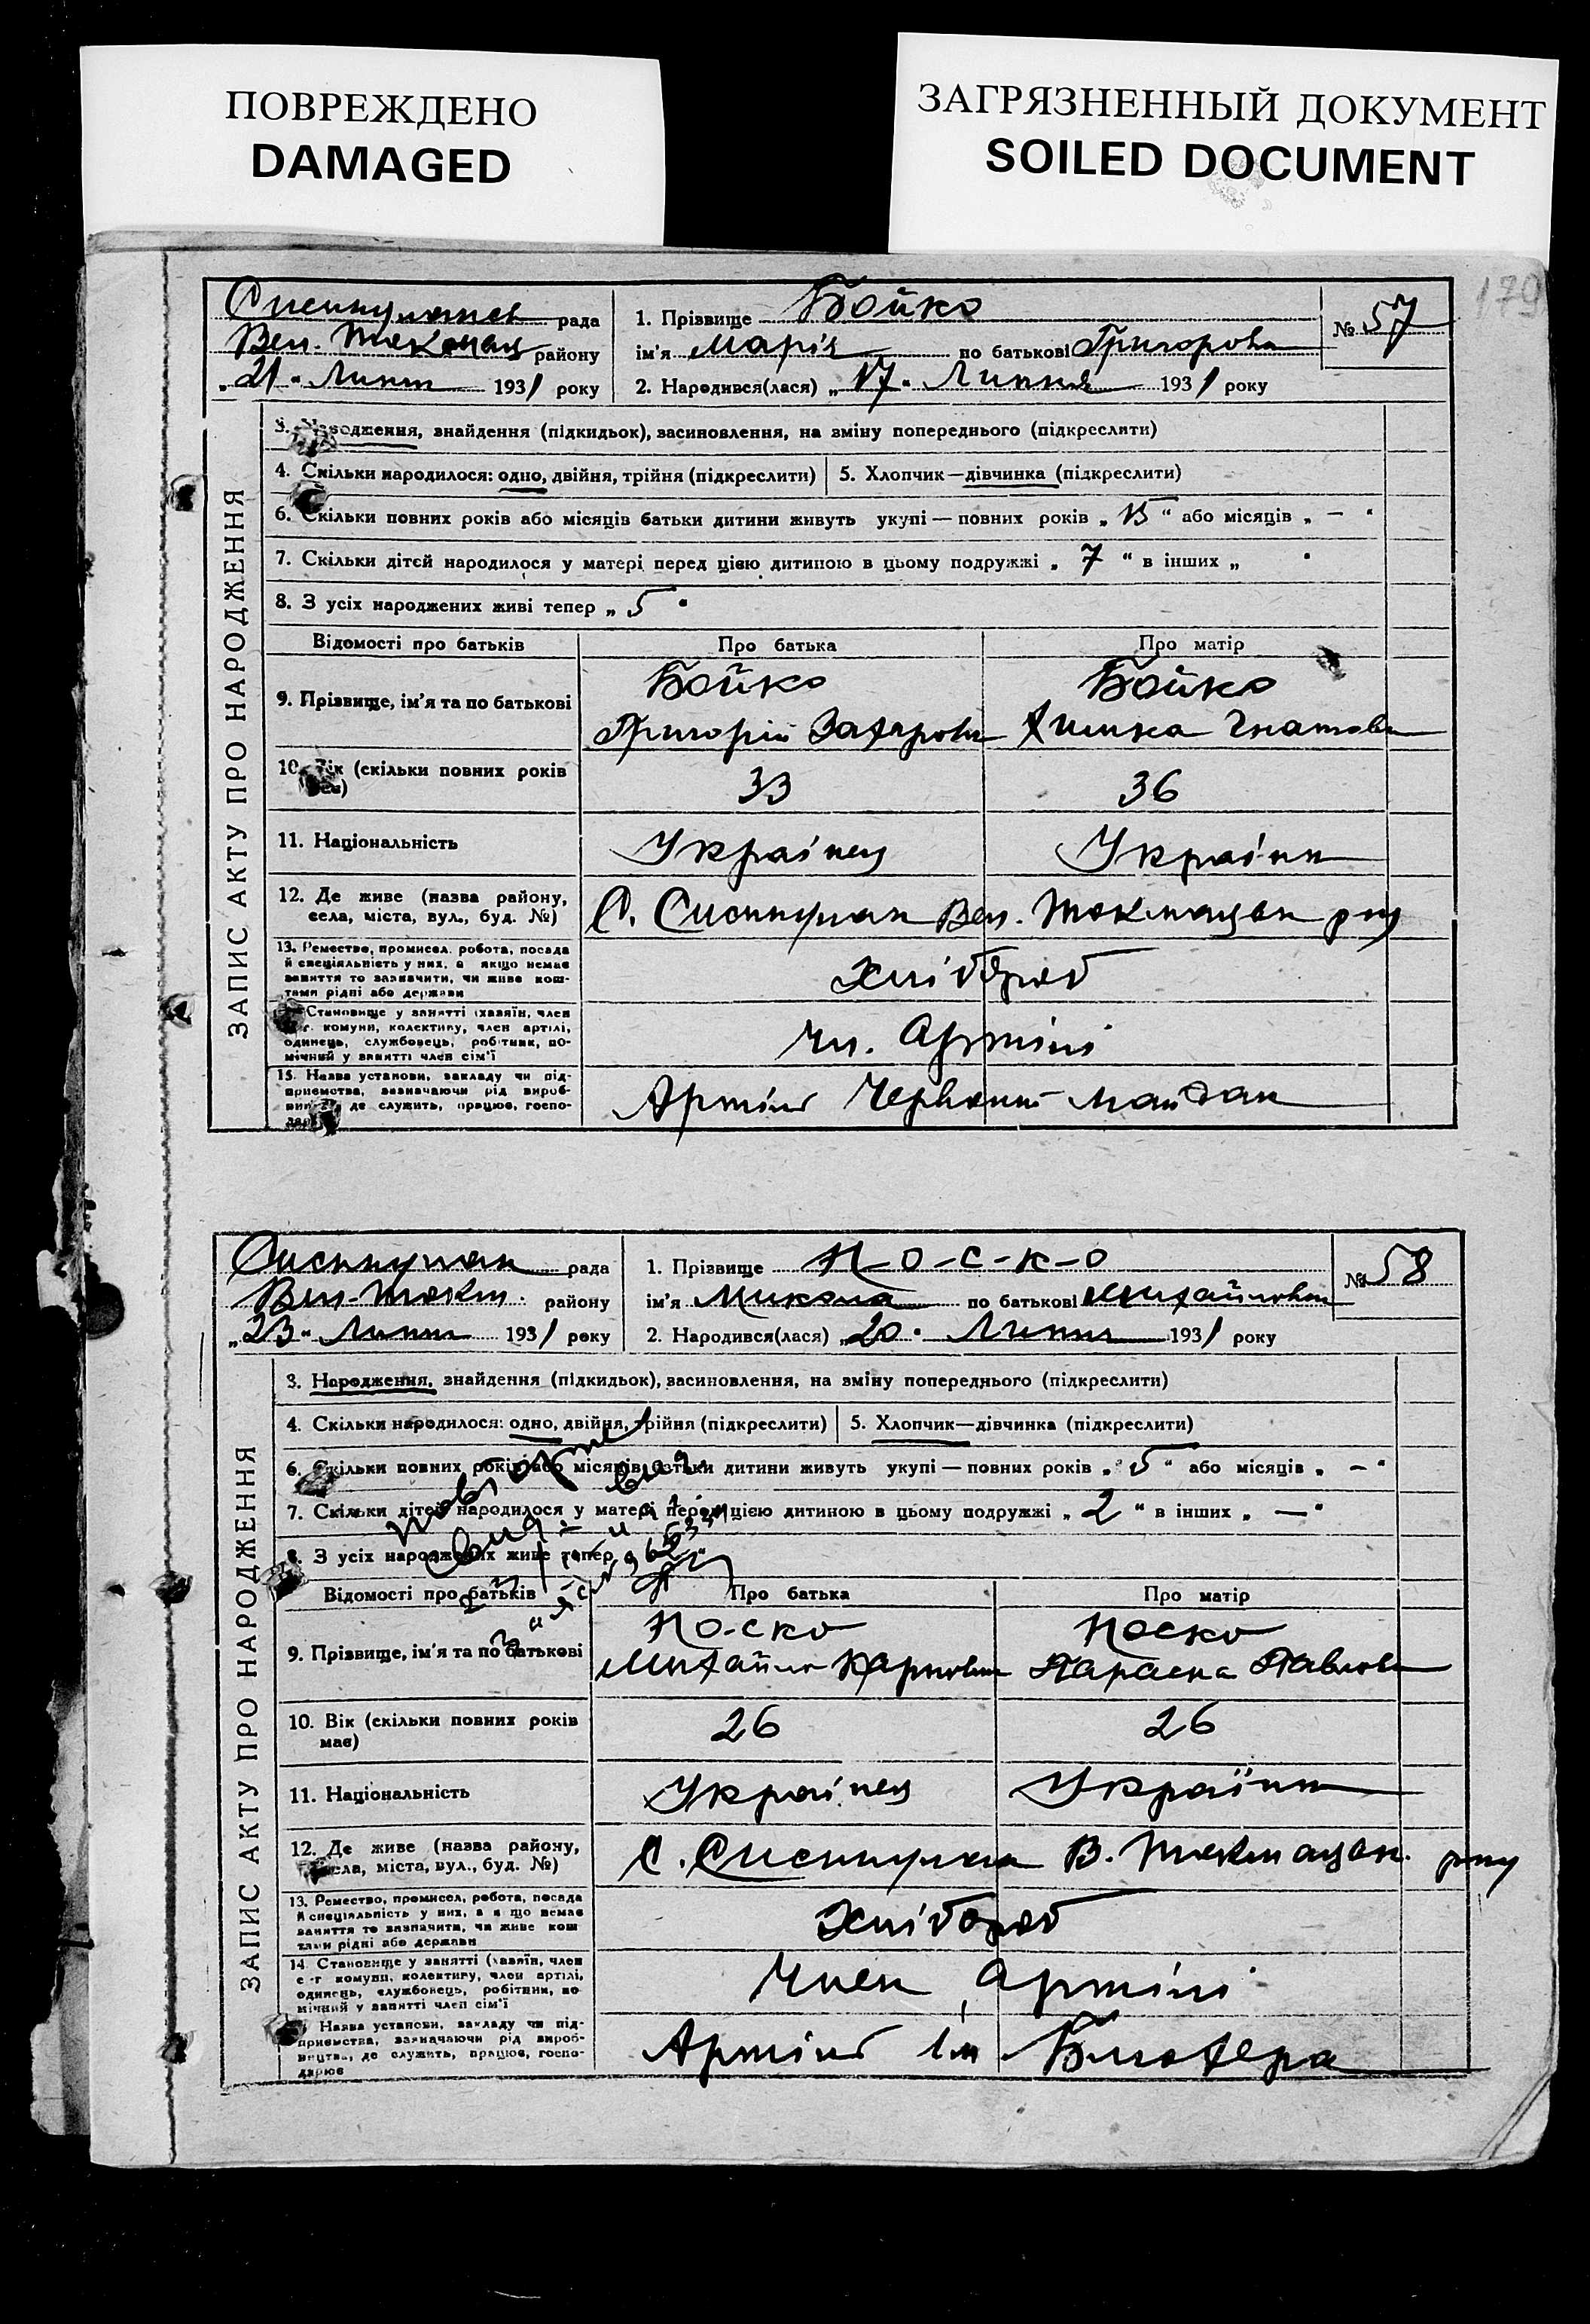 ПОВРЕЖДЕНО
DAMAGED
ЗАГРЯЗНЕННЫЙ ДОКУМЕНТ
SOILED DOCUMENT
179
ЗАПИС АКТУ ПРО НАРОДЖЕННЯ
рада
Вел. Токмац району
„21“ Липн 1931 року
1. Прізвище Бойко
ім'я Марія по батькові Григоровн
2. Народився(лася) „17“ Липня 1931 року
№ 57
3. Народження, знайдення (підкидьок), засиновлення, на зміну попереднього (підкреслити)
4. Скільки народилося: одно, двійня, трійня (підкреслити) 5. Хлопчик—дівчинка (підкреслити)
6. Скільки повних років або місяців батьки дитини живуть укупі — повних років „15“ або місяців „–“
7. Скільки дітей народилося у матері перед цією дитиною в цьому подружжі „7“ в інших „ “
8. З усіх народжених живі тепер „5“
Відомості про батьків Про батька Про матір
9. Прізвище, ім'я та по батькові
Бойко Бойко
Григорій Захарович Химка Гнатовн
10. Вік (скільки повних років має) 33 36
11. Національність Українец Україн
12. Де живе (назва району,
села, міста, вул., буд. №)
С. Вел. Токмацьк р-ну
13. Ремество, промисел, робота, посада
й спеціяльність у них, а якщо немає
заняття то зазначити, чи живе кош-
тами рідні або держави
Хлібороб
Становище у занятті (хазяїн, член
с.-г. комуни, колективу, член артілі,
одинець, службовець, робітник, по-
мічний у занятті член сім'ї
Чл. Артілі
15. Назва установи, закладу чи під-
приємства, зазначаючи рід вироб-
ництва, де служить, працює, госпо-
дарює
Артіль Червоний майдан
ЗАПИС АКТУ ПРО НАРОДЖЕННЯ
рада
Вел-Токм. району
„23“ Липн 1931 року
1. Прізвище Н-о-с-к-о
ім'я Микола по батькові Михайлович
2. Народився(лася) „20“ Липня 1931 року
№ 58
3. Народження, знайдення (підкидьок), засиновлення, на зміну попереднього (підкреслити)
4. Скільки народилося: одно, двійня, трійня (підкреслити) 5. Хлопчик—дівчинка (підкреслити)
6. Скільки повних років або місяців батьки дитини живуть укупі — повних років „5“ або місяців „–“
7. Скільки дітей народилося у матері перед цією дитиною в цьому подружжі „2“ в інших „—“
8. З усіх народжених живе тепер
Відомості про батьків Про батька Про матір
9. Прізвище, ім'я та по батькові
Но-ско Носко
Михайло Карпович Параска Павловн
10. Вік (скільки повних років
має)
26 26
11. Національність Українец Україн
12. Де живе (назва району,
села, міста, вул., буд. №)
С. В. Токмацьк. р-ну
13. Ремество, промисел, робота, посада
й спеціяльність у них, а якщо немає
заняття то зазначити, чи живе кош
тами рідні або держави
Хлібороб
14. Становище у занятті (хазяїн, член
с-г комуни, колективу, член артілі,
одинець, службовець, робітник, по
мічний у занятті член сім'ї
Член Артілі
Назва установи, закладу чи під-
приємства, зазначаючи рід вироб-
ництва, де служить, працює, госпо-
дарює
Артіль ім Блюхера